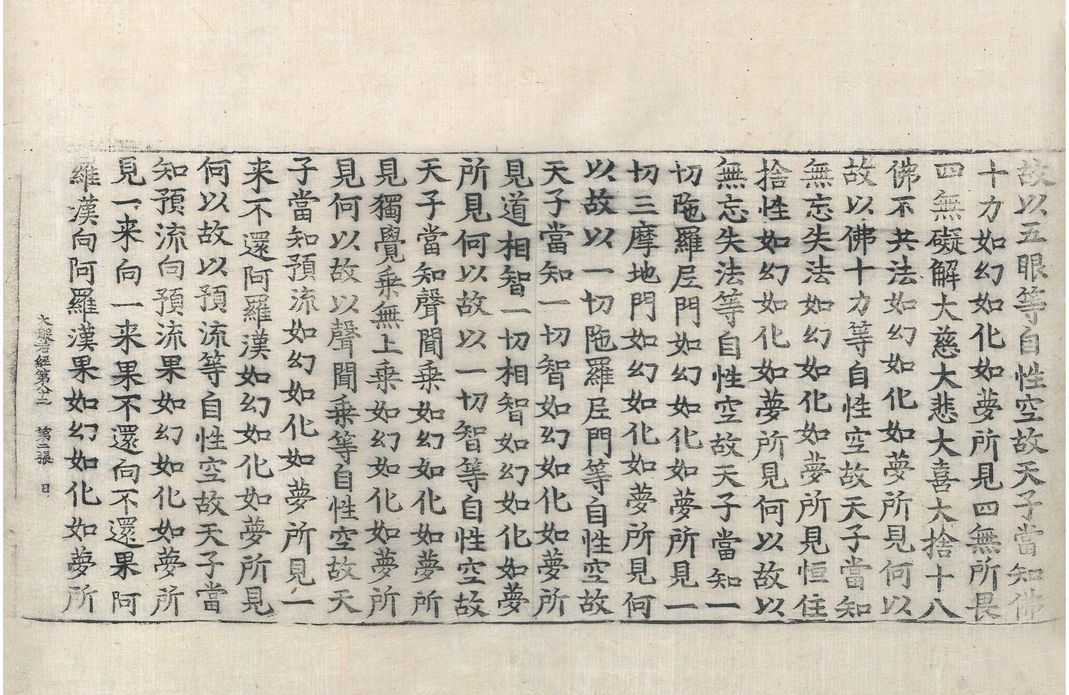 故以五眼等自性空故天子當知佛
十力如幻如化如夢所見四無所畏
四無礙解大慈大悲大喜大捨十八
佛不共法如幻如化如夢所見何以
故以佛十力等自性空故天子當知
無忘失法如幻如化如夢所見恒住
捨性如幻如化如夢所見何以故以
無忘失法等自性空故天子當知一
切陁羅尼門如幻如化如夢所見一
切三摩地門如幻如化如夢所見何
以故以一切陁羅尼門等自性空故
天子當知一切智如幻如化如夢所
見道相智一切相智如幻如化如夢
所見何以故以一切智等自性空故
天子當知聲聞乗如幻如化如夢所
見獨覺乗無上乗如幻如化如夢所
見何以故以聲聞乗等自性空故天
子當知預流如幻如化如夢所見一
来不還阿羅漢如幻如化如夢所見
何以故以預流等自性空故天子當
知預流向預流果如幻如化如夢所
見一来向一来果不還向不還果阿
羅漢向阿羅漢果如幻如化如夢所
大般若經第八十二 第二張 日